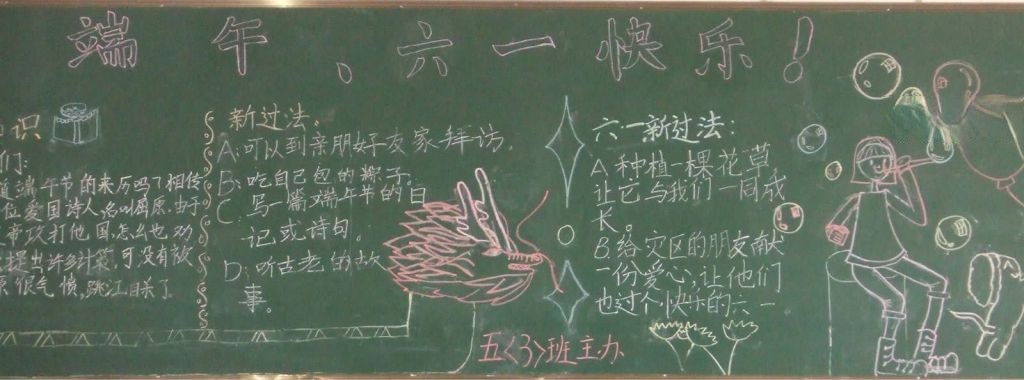 端午、六一快乐!
识
们:
道端午节的来历吗?相传
位爱国诗人,名叫屈原.由于
帝攻打他国,怎么也劝
提出许多计策,可没有被
很气愤,跳江自杀了
新过法:
A:可以到亲朋好友家拜访.
B:吃自己包的粽子.
C:写一篇端午节的日
记或诗句.
D:听古老的故
事。
六一新过法:
A种植一棵花草
让它与我们一同成
长。
B给灾区的朋友献
一份爱心,让他们
也过个快乐的六一
五<3>班主办